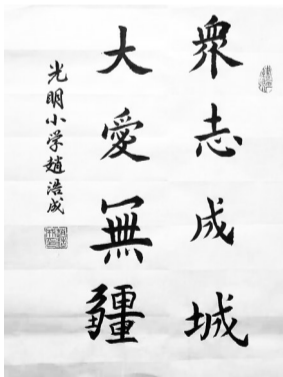 眾志成城
大愛無疆
光明小学趙浩成